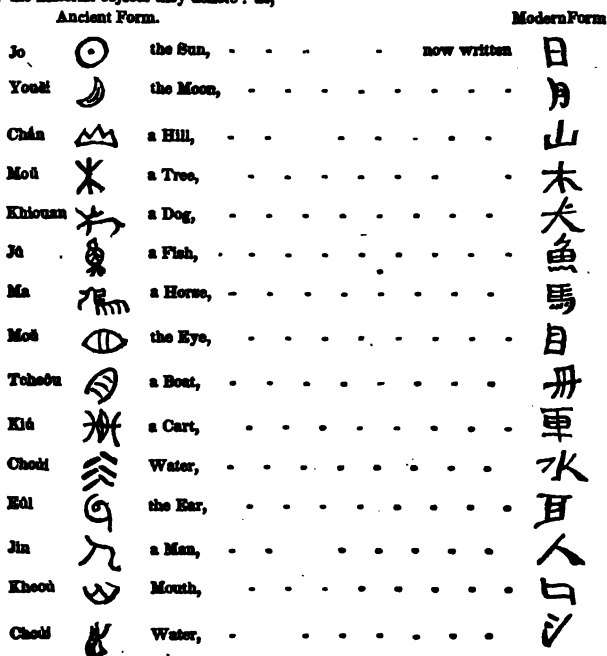 the material objects they denote : as,
Ancient Form. Modern Form
Jo the Sun, - - - - now written 日
Youĕi the Moon, - - - - - - - - 月
Chán a Hill, - - - - - - - 山
Moŭ a Tree, - - - - - - - 木
Khiouan a Dog, - - - - - - - - 犬
Jû a Fish, - - - - - - - - 魚
Ma a Horse, - - - - - - - - 馬
Moŭ the Eye, - - - - - - - - 目
Tcheôu a Boat, - - - - - - - - 舟
Kiú a Cart, - - - - - - - - 車
Choùi Water, - - - - - - - - 水
Eùl the Ear, - - - - - - - - 耳
Jin a Man, - - - - - - - 人
Kheoù Mouth, - - - - - - - - 口
Choùi Water, - - - - - - - 氵